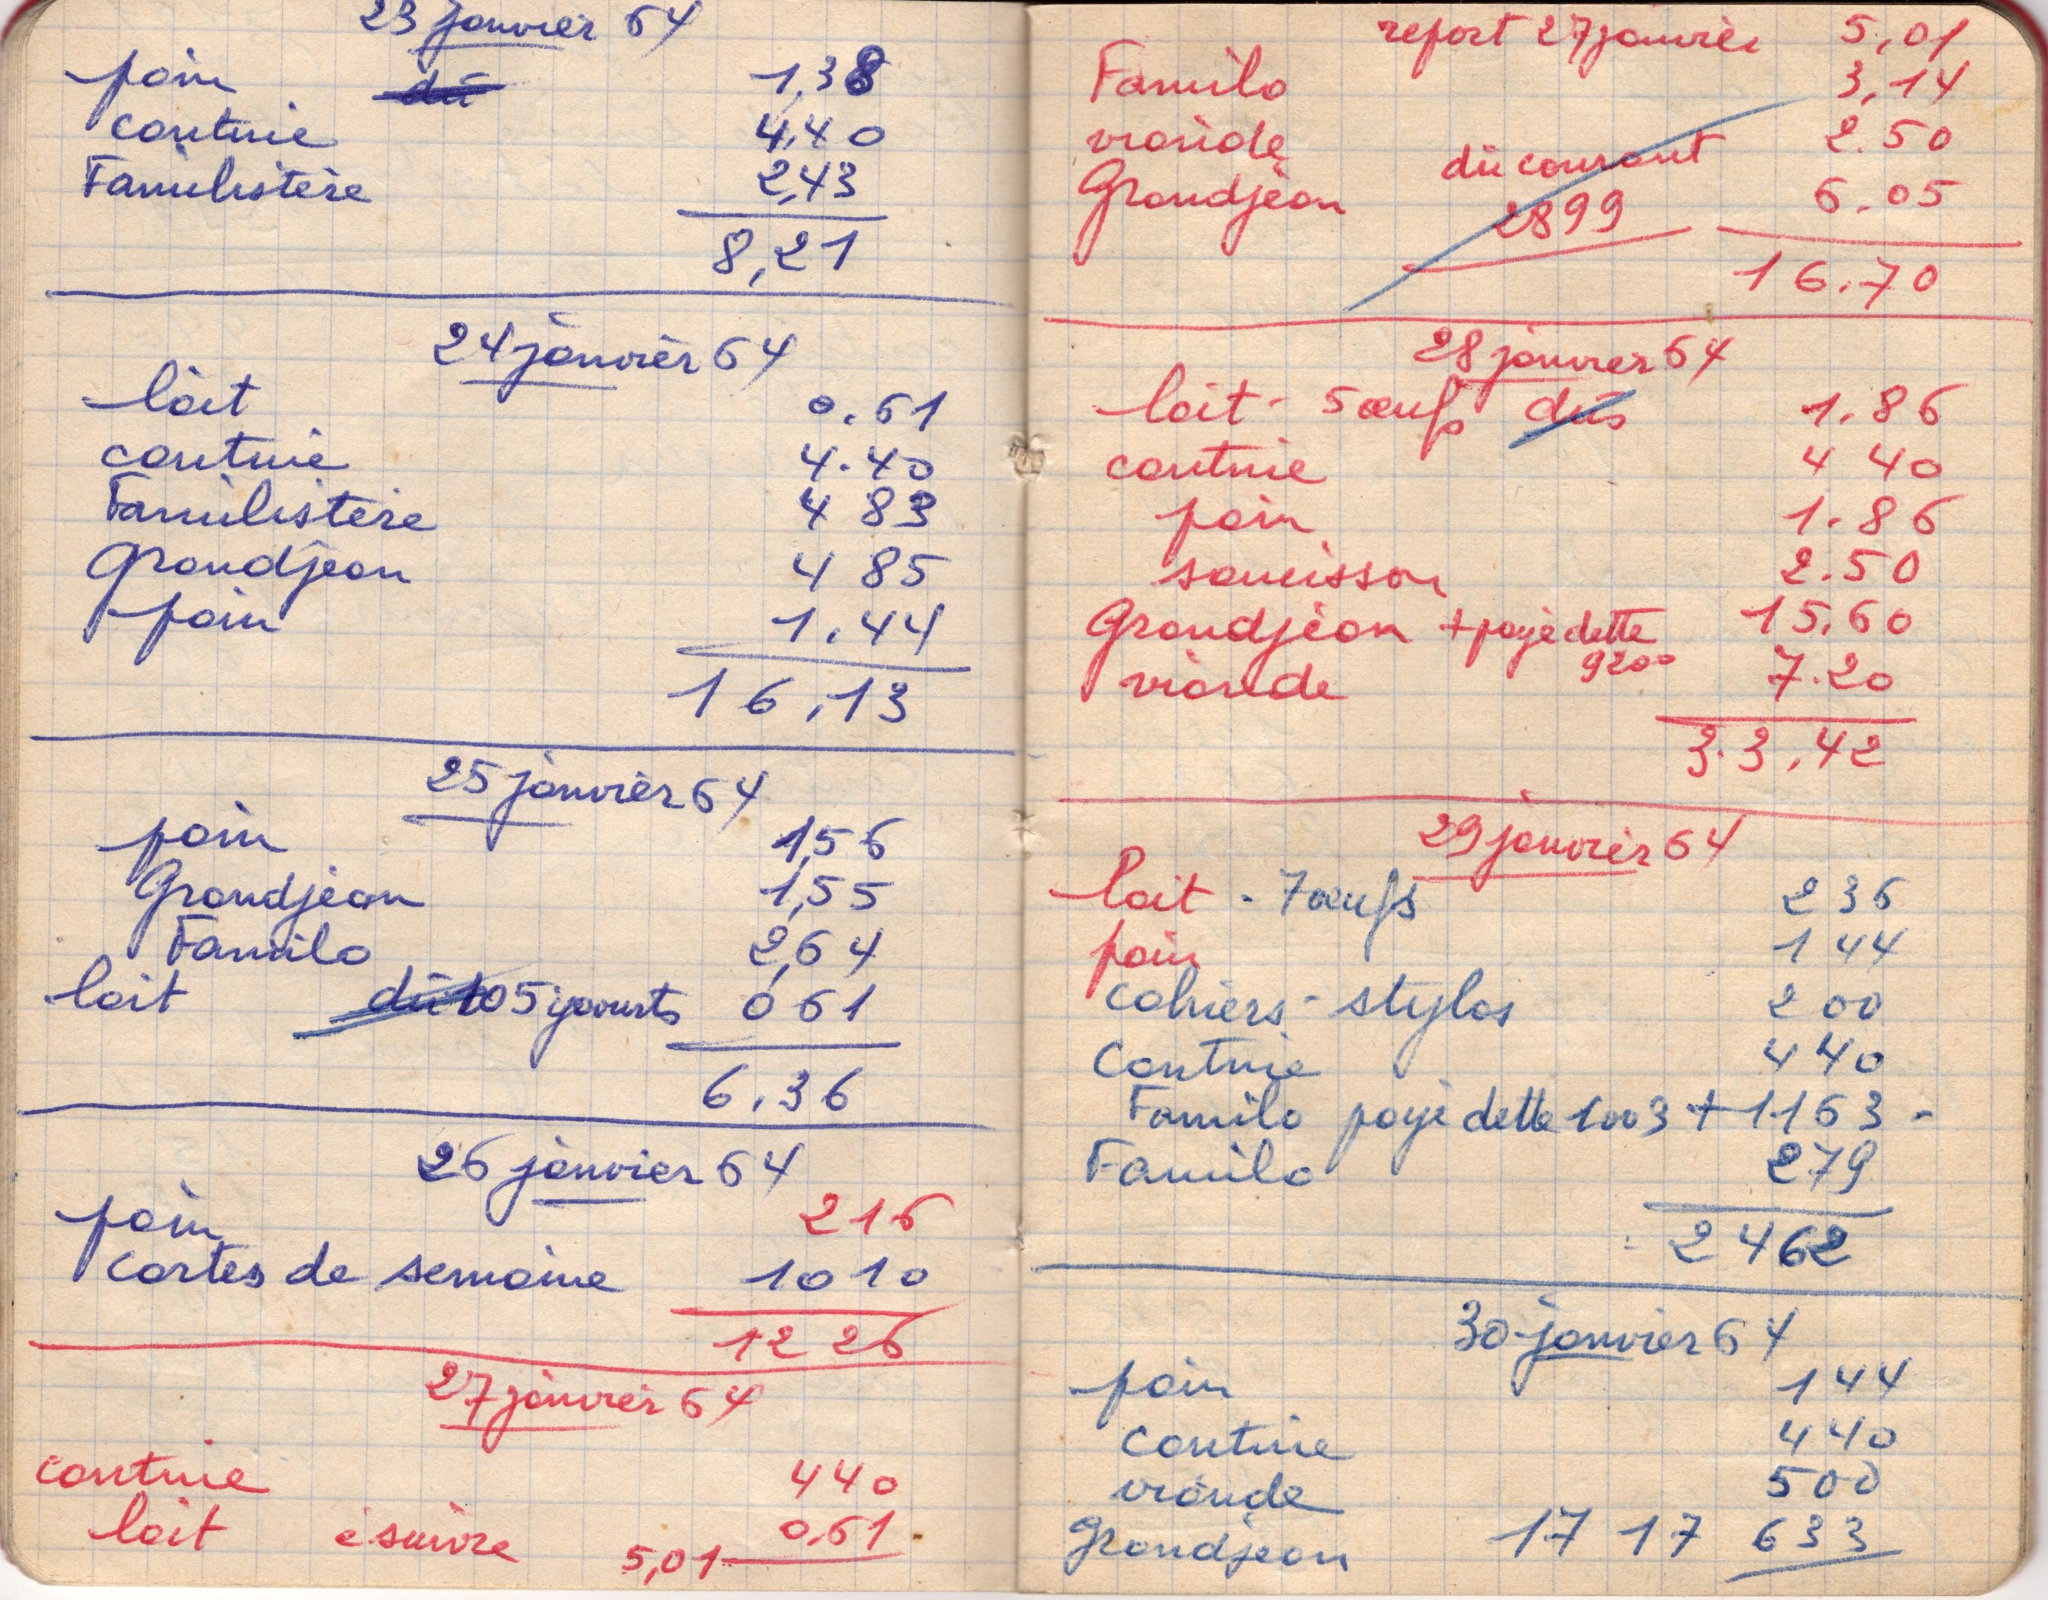 23 janvier 64
pain dû 1,38
cantine 4,40
Familistère 2,43
8,21
24 janvier 64
lait 0.61
cantine 4.40
Familistère 4 83
Grandjean 4 85
pain 1.44
16,13
25 janvier 64
pain 1,56
Grandjean 1,55
Familo 2,64
lait 5 yaourts 0 61
6,36
26 janvier 64
pain 216
Cartes de semaine 1010
1226
27 janvier 64
cantine 440
lait à suivre 0,61
5,01
report 27 janvier 5,01
Familo 3,14
viande 2.50
Grandjean dû courant 6.05
2899
16.70
28 janvier 64
lait - 5 œufs dûs 1.86
cantine 4 40
pain 1.86
saucisson 2.50
Grandjean + payé dette 15,60
9200
viande 7.20
33,42
29 janvier 64
lait - 7 œufs 236
pain 144
Cahiers - stylos 200
Cantine 440
Familo payé dette 1003 + 1163 -
Familo 279
2462
30 janvier 64
pain 144
cantine 440
viande 500
Grandjean 17 17 633